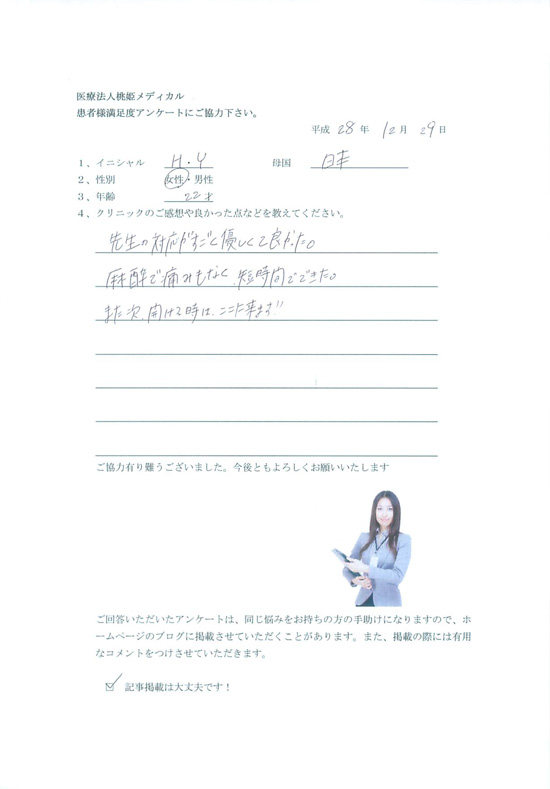 医療法人桃姫メディカル
患者様満足度アンケートにご協力下さい。
平成 28 年 12 月 29 日
1、イニシャル H・Y 母国 日本
2、性別 女性・男性
3、年齢 22才
4、クリニックのご感想や良かった点などを教えてください。
先生の対応がすごく優しくて良かった。
麻酔で痛みもなく、短時間でできた。
また次、開ける時は、ここに来ます!!
ご協力有り難うございました。今後ともよろしくお願いいたします
ご回答いただいたアンケートは、同じ悩みをお持ちの方の手助けになりますので、ホ
ームページのブログに掲載させていただくことがあります。また、掲載の際には有用
なコメントをつけさせていただきます。
☑ 記事掲載は大丈夫です！